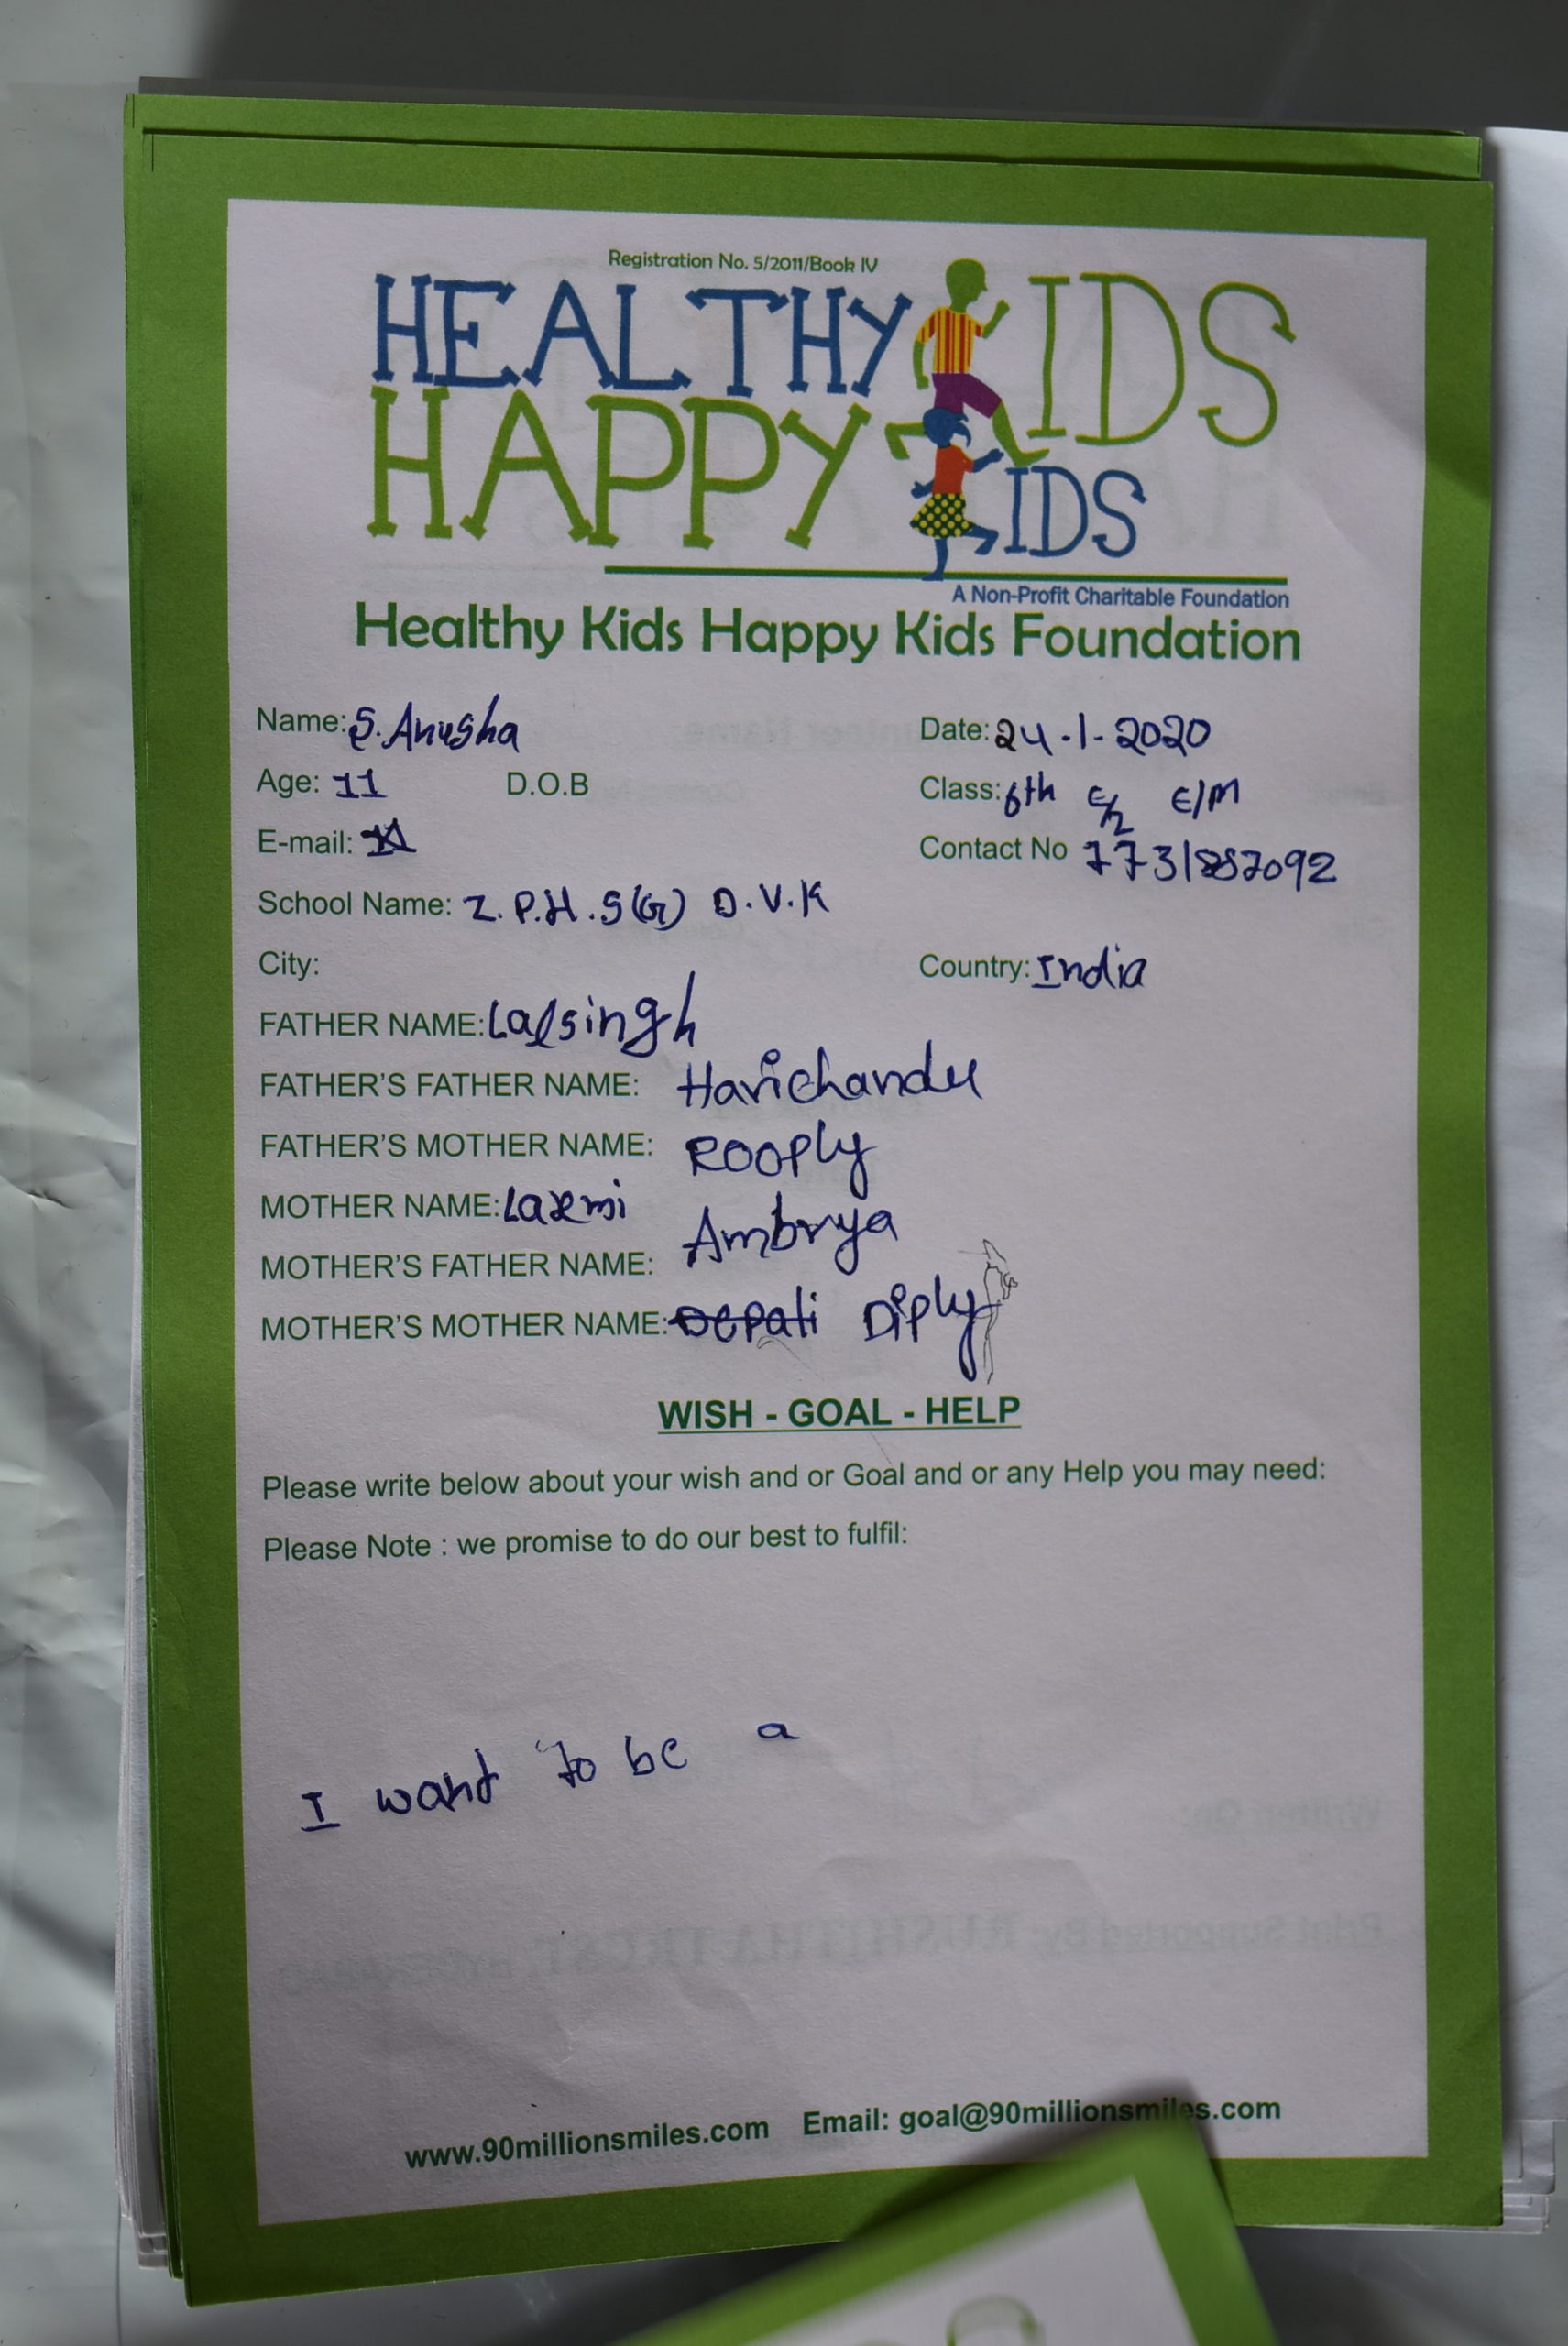 Registration No. 5/2011/Book IV
HEALTHY KIDS
HAPPY KIDS
A Non-Profit Charitable Foundation
Healthy Kids Happy Kids Foundation
Name: S. Anusha Date: 24-1-2020
Age: 11 D.O.B Class: 6th E/2 E/M
E-mail: Contact No
School Name: Z.P.H.S(G) D.V.K
City: Country: India
FATHER NAME: Lalsingh
FATHER'S FATHER NAME: Harichandu
FATHER'S MOTHER NAME: ROOPly
MOTHER NAME: Laxmi
MOTHER'S FATHER NAME: Ambrya
MOTHER'S MOTHER NAME: Depali Diply
WISH - GOAL - HELP
Please write below about your wish and or Goal and or any Help you may need:
Please Note : we promise to do our best to fulfil:
I want to be a
www.90millionsmiles.com Email: goal@90millionsmiles.com